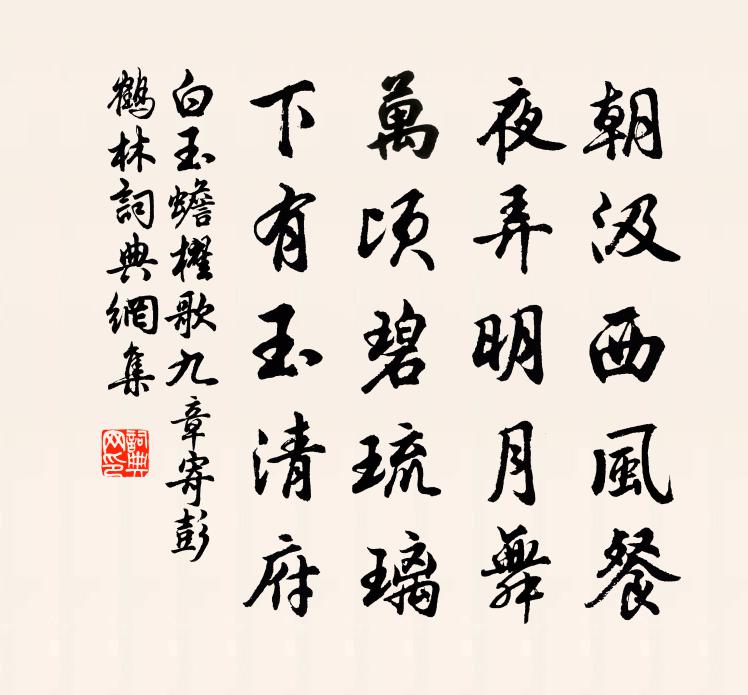 朝汲西風餐
夜弄明月舞
萬頃碧琉璃
下有玉清府
白玉蟾櫂歌九章寄彭
鶴林詞典網集
詞典網印